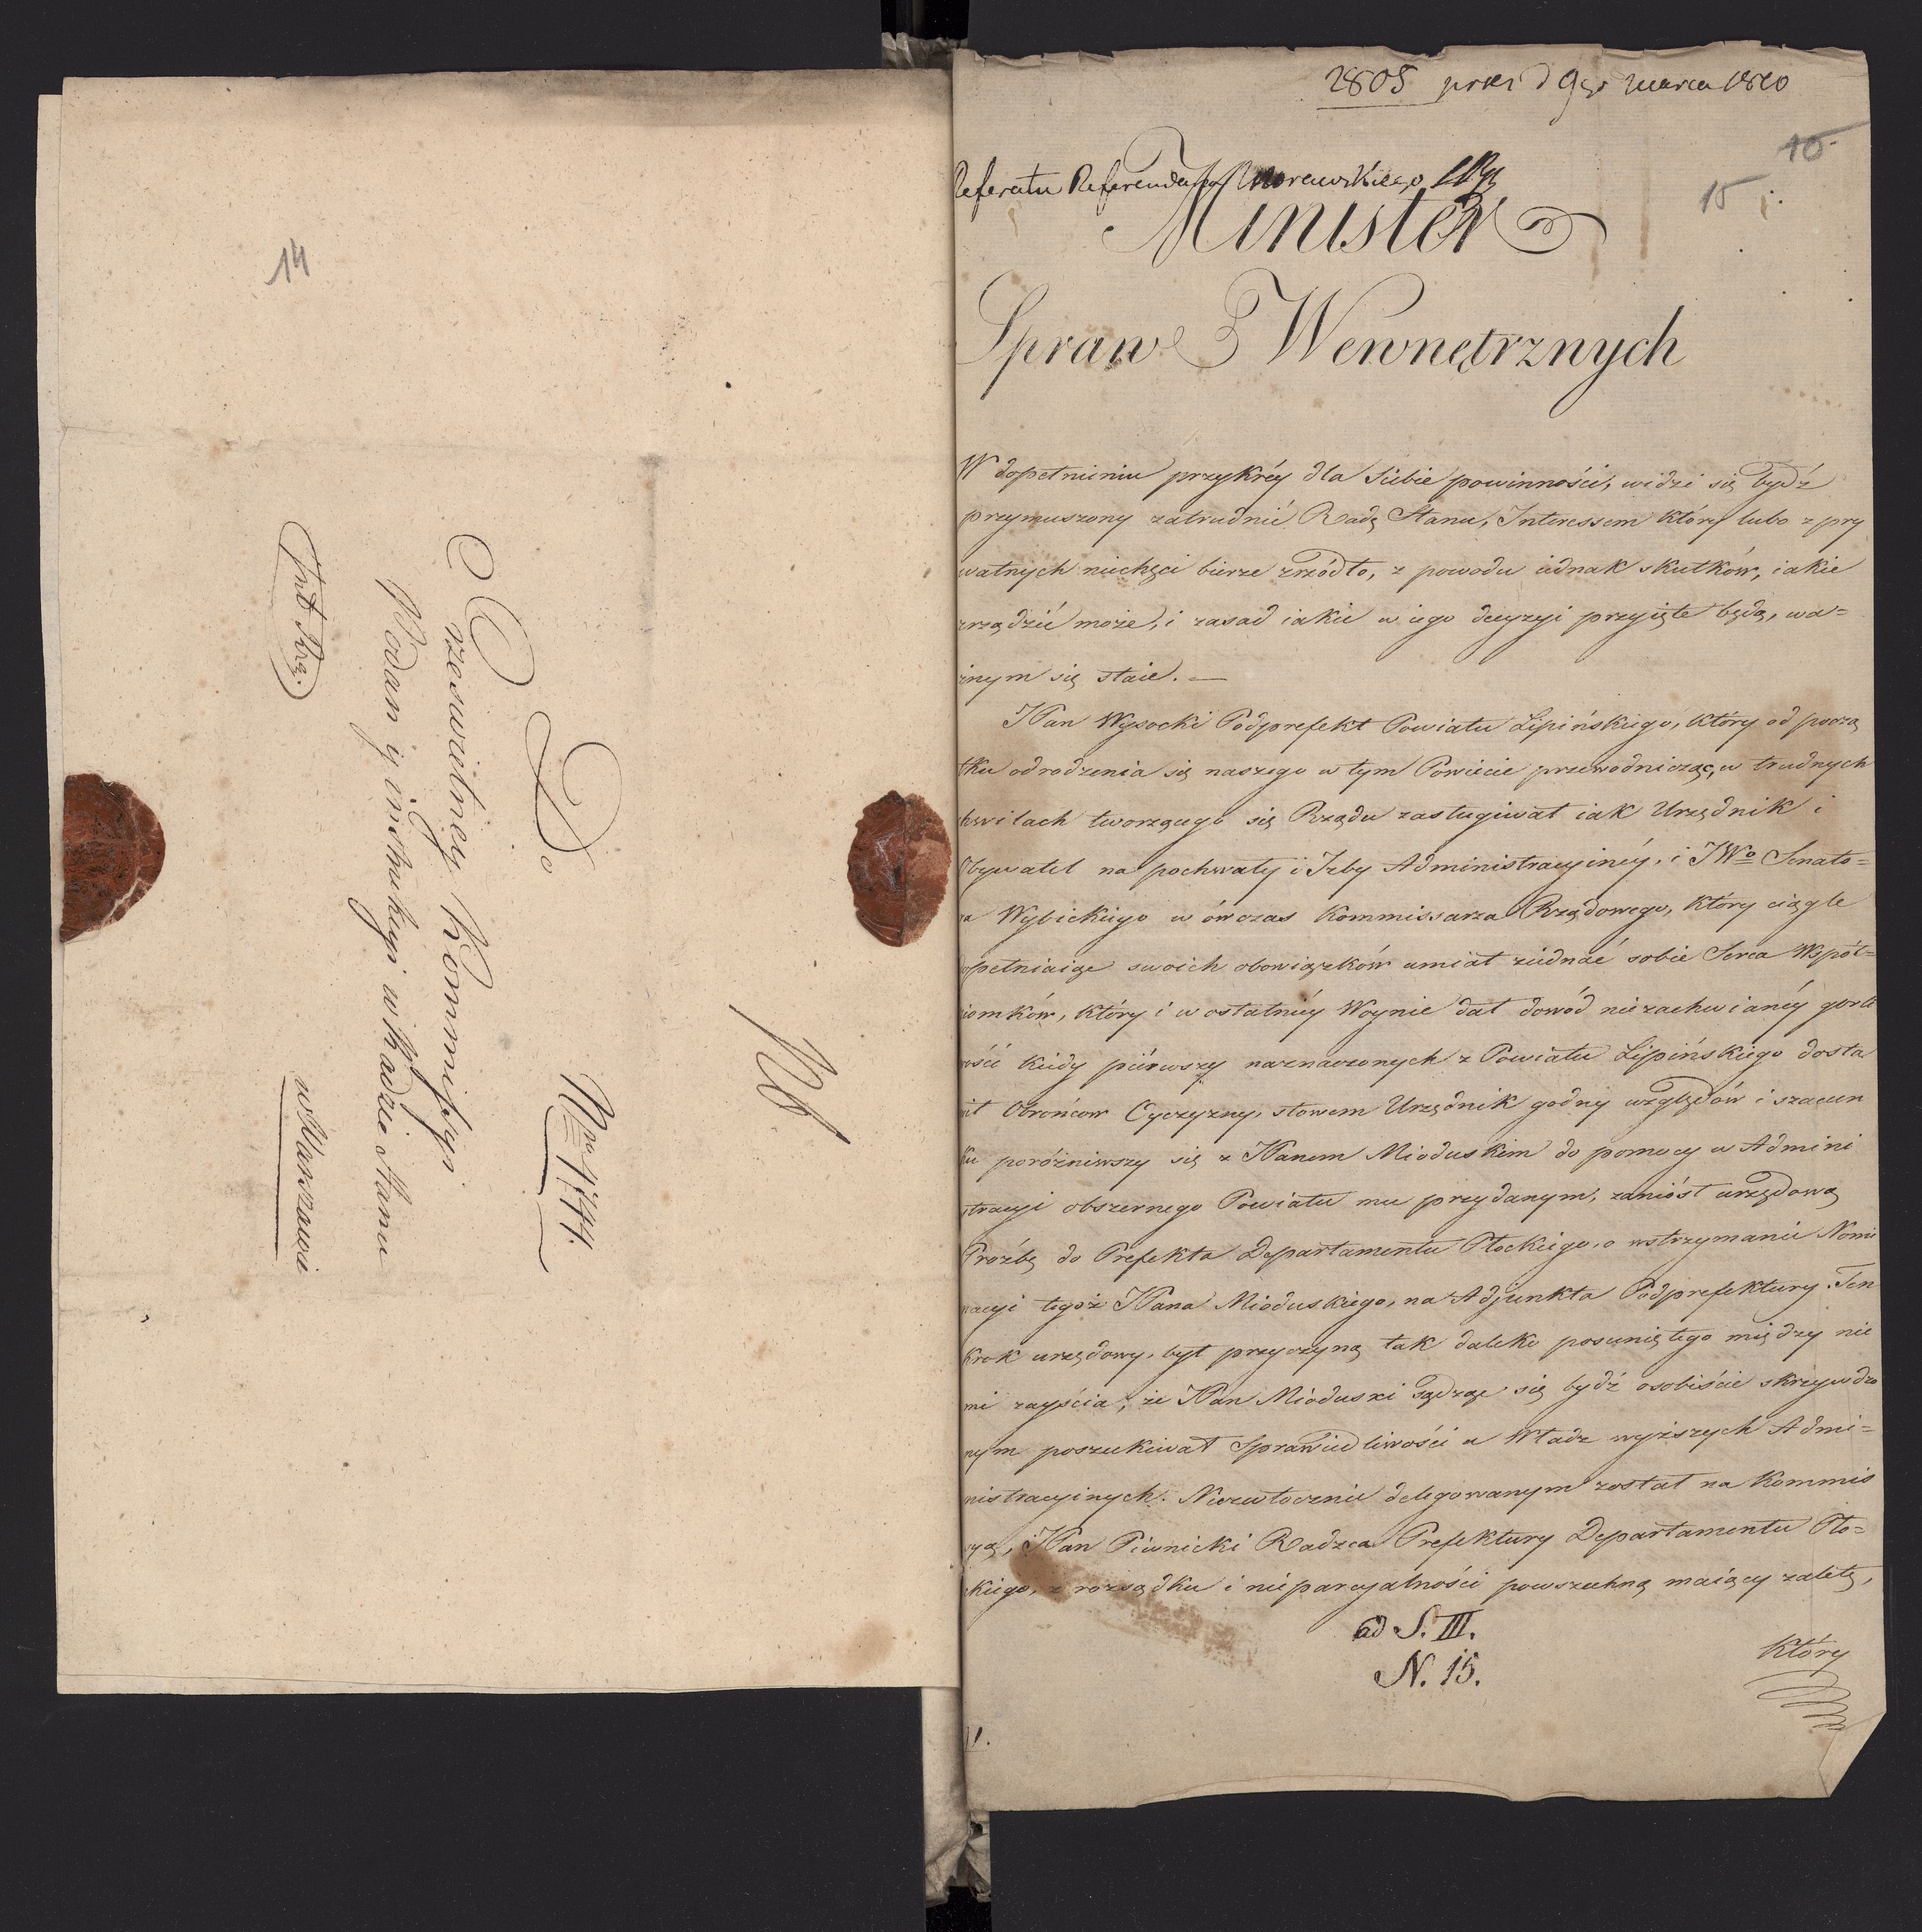 14
Do
Prześwietney Kommissyi
Podan y instrukcyi w Radzie Stanu
w Warszawie
Nro 1,144.
2805 prez d 9go Marca 1810
10
15
Referatu Referendarza Morawskiego
Minister
Spraw Wewnętrznych
W dopełnieniu przykréy dla Siebie powinności, widzi się bydź
przymuszony zatrudnić Radę Stanu, Interessem który lubo z pry
watnych niechęci bierze źrzódło, z powodu iednak skutków, iakie
zrządzić może, i zasad iakie w iego decyzyi przyięte będą, wa=
żnym się staie. —
JPan Wysocki Podprefekt Powiatu Lipińskiego, który od począ
tku odrodzenia się naszego w tym Powiecie przewodnicząc, w trudnych
hwilach tworzącego się Rządu zasługiwał iak Urzędnik i
Obywatel na pochwały i Izby Administracyinéy, i JWo Senato=
ra Wybickiego w ówczas Kommissarza Rządowego, który ciągle
opełniaiąc swoich obowiązków umiał ziednać sobie Serca Współ=
iomków, który i w ostatniéy Woynie dał dowód niezachwianéy gorli
wości kiedy piérwszy naznaczonych z Powiatu Lipińskiego dosta
wił Obrońcow Oyczyzny, słowem Urzędnik godny względów i szacun
ku poróżniwszy się z JPanem Mioduskim do pomocy w Admini
stracyi obszernego Powiatu mu przydanym, zaniósł urzędową
Prozbę do Prefekta Departamentu Płockiego, o wstrzymanie Nomi
nacyi tegoż JPana Mioduskiego, na Adjunkta Podprefektury. Ten
krok urzędowy, był przyczyną tak daleko posuniętego między nie
mi zayścia, że JPan Mioduski sądząc się bydź osobiście skrzywdzo
nym poszukiwał Sprawiedliwości u Władz wyższych Admi=
nistracyinych. Niezwłocznie delegowanym został na Kommis
syą, JPan Piwnicki Radzca Prefektury Departamentu Pło=
ckiego, z rozsądku i nieparcyalności powszechną maiący zaletę,
ad S. III.
N. 15.
który